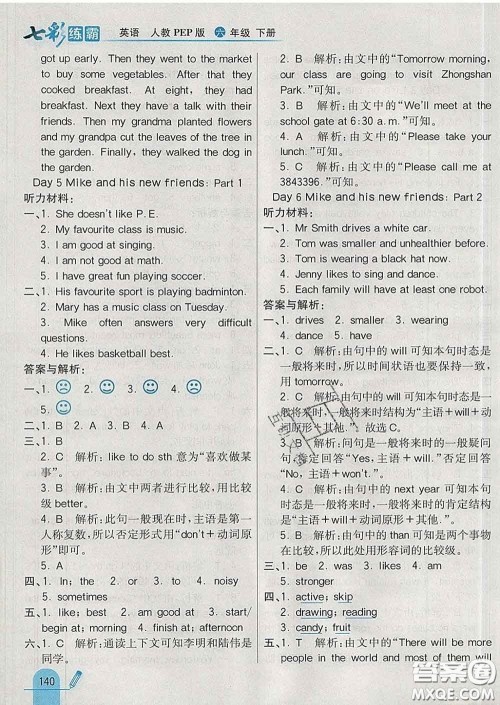 七彩练霸 英语 人教PEP版 六年级 下册
got up early. Then they went to the market
to buy some vegetables. After that they
cooked breakfast. At eight, they had
breakfast. Next they have a talk with their
friends. Then my grandma planted flowers
and my grandpa cut the leaves of the tree in
the garden. Finally, they walked the dog in
the garden.
Day 5 Mike and his new friends: Part 1
听力材料:
一、1. She doesn't like P.E.
2. My favourite class is music.
3. I am good at singing.
4. I am not good at math.
5. I have great fun playing soccer.
二、1. His favourite sport is playing badminton.
2. Mary has a music class on Tuesday.
3. Mike often answers very difficult
questions.
4. He likes basketball best.
答案与解析:
一、1. 2. 3. 4.
5.
二、1. B 2. A 3. B 4. B
三、1. C 解析: like to do sth 意为“喜欢做某
事”。
2. B 解析: 由文中两者进行比较, 用比较
级 better。
3. B 解析: 此句一般现在时, 主语是第一
人称复数, 所以否定形式用“don't+动词
原形”即可。
四、1. In; the 2. or 3. to 4. noisy
5. sometimes
五、1. like; best 2. am good at 3. start/
begin at; morning 4. finish at; afternoon
六、1. C 解析: 通读上下文可知李明和陆伟是
同学。
140
2. B 解析: 由文中的“Tomorrow morning,
our class are going to visit Zhongshan
Park.”可知。
3. B 解析: 由文中的“We'll meet at the
school gate at 6:30 a.m.”可知。
4. A 解析: 由文中的“Please take your
lunch.”可知。
5. C 解析: 由文中的“Please call me at
3843396.”可知。
Day 6 Mike and his new friends: Part 2
听力材料:
一、1. Mr Smith drives a white car.
2. Tom was smaller and unhealthier before.
3. Tom is wearing a black hat now.
4. Jenny likes to sing and dance.
5. Each family will have at least one robot.
答案与解析:
一、1. drives 2. smaller 3. wearing
4. dance 5. will
二、1. C 解析: 由句中的 will 可知本句时态是
一般将来时, 所以时间状语也要保持一致,
用 tomorrow。
2. C 解析: 由句中的 will 可知本句时态是
一般将来时, 一般将来时结构为“主语+will+动词
原形+其他.”。故选C。
3. B 解析: 问句是一般将来时的一般疑问
句, 肯定回答“Yes, 主语+will.” 否定回答
“No, 主语+won't.”。
4. C 解析: 由句中的 next year 可知本句
时态是一般将来时, 一般将来时的肯定结构是
“主语+will+动词原形+其他.”。
5. B 解析: 由句中的 than 可知是两个事物
在作比较, 所以此处用形容词的比较级。
三、1. be 2. was 3. likes 4. will
5. stronger
四、1. active; skip
2. drawing; reading
3. candy; fruit
五、1. T 解析: 由文中的“There will be more
people in the world and most of them will
答案圈
MXQE.COM